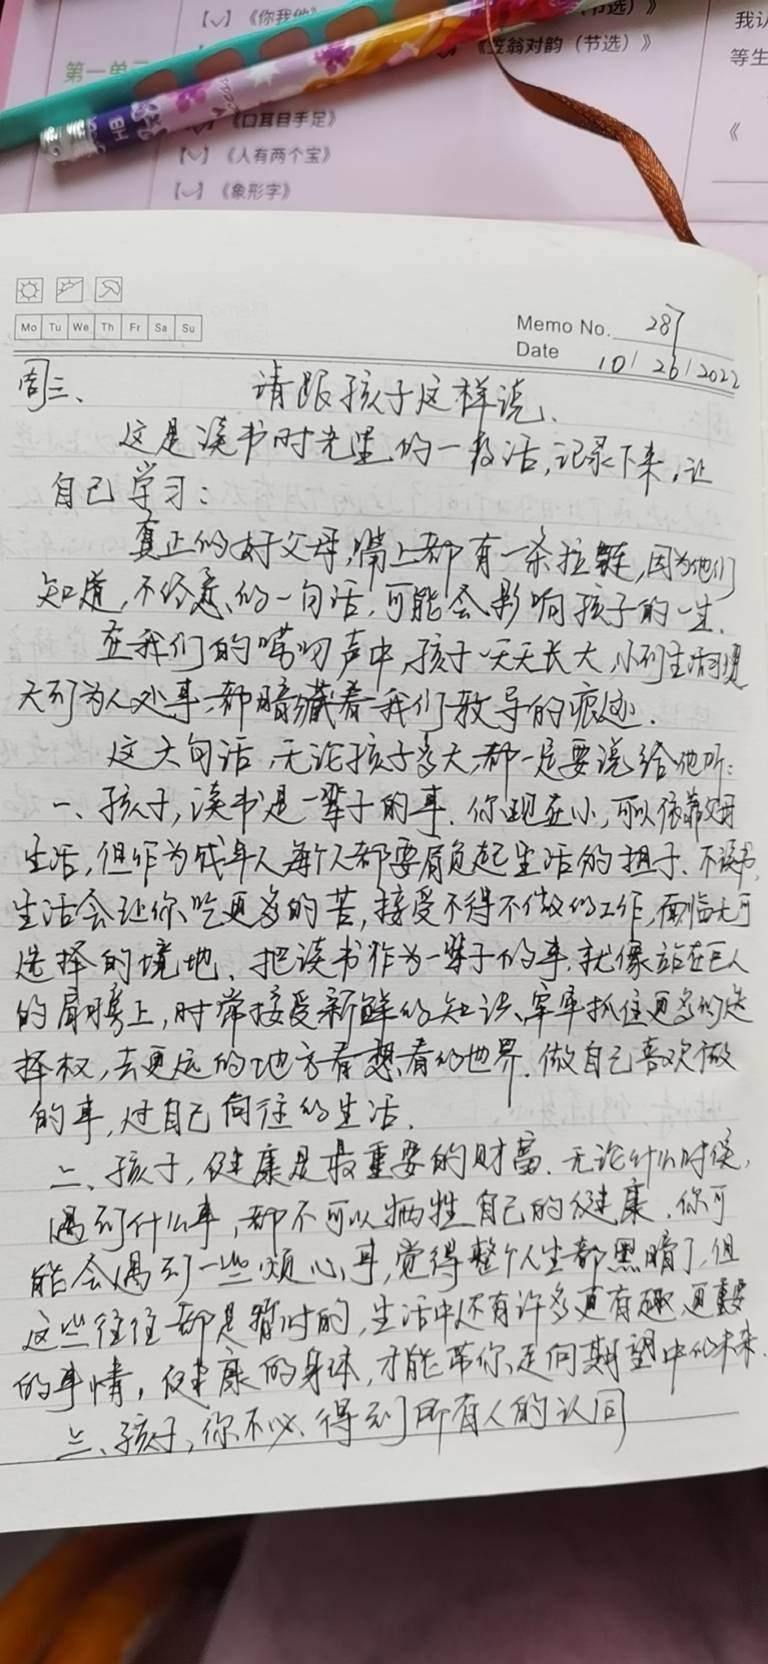 【✓】《你我他》
第一单元
(节选)》
《笠翁对韵（节选）》
我认
等生
《口耳目手足》
【✓】《人有两个宝》
【✓】《象形字》
《
HB
Mo Tu We Th Fr Sa Su
Memo No. 287
Date 10/26/2022
周三、 请跟孩子这样说.
这是读书时光里的一段话,记录下来,让
自己学习:
真正的好父母,嘴上都有一条拉链,因为他们
知道,不经意的一句话,可能会影响孩子的一生.
在我们的唠叨声中,孩子一天天长大,小到生活习惯
大到为人处事,都暗藏着我们教导的痕迹.
这六句话,无论孩子多大,都一定要说给他听:
一、孩子,读书是一辈子的事.你现在小,可以依靠父母
生活,但作为成年人每个人都要肩负起生活的担子.不读书,
生活会让你吃更多的苦,接受不得不做的工作,面临无可
选择的境地、把读书作为一辈子的事.就像站在巨人
的肩膀上,时常接受新鲜的知识、牢牢抓住更多的选
择权,去更远的地方看想看的世界.做自己喜欢做
的事,过自己向往的生活.
二、孩子,健康是最重要的财富.无论什么时候,
遇到什么事,都不可以牺牲自己的健康.你可
能会遇到一些烦心事,觉得整个人生都黑暗了,但
这些往往都是暂时的,生活中还有许多更有趣、更重要
的事情,健康的身体,才能带你走向期望中的未来.
三、孩子,你不必得到所有人的认同